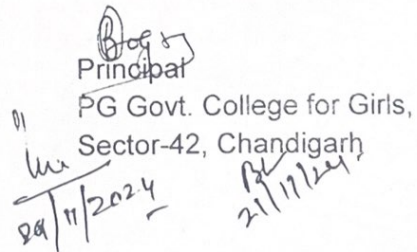 Principal
PG Govt. College for Girls,
Sector-42, Chandigarh
29/11/2024
21/11/24